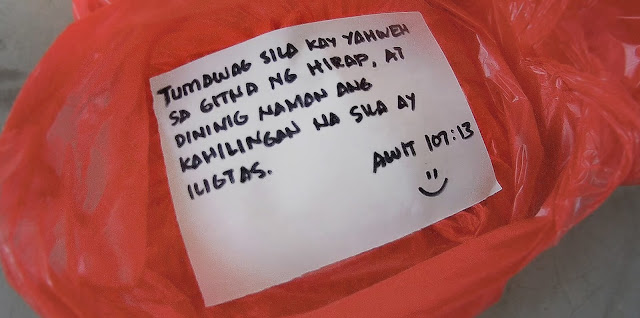 TUMAWAG SILA KAY YAHWEH
SA GITNA NG HIRAP, AT
DININIG NAMAN ANG
KAHILINGAN NA SILA AY
ILIGTAS.
AWIT 107:13